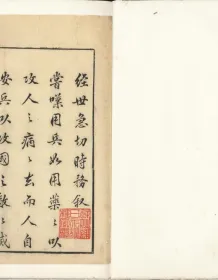 經世急切時務敘
嘗嘆用兵如用藥〻以
攻人之病〻去而人自
安兵以攻國之敵〻滅